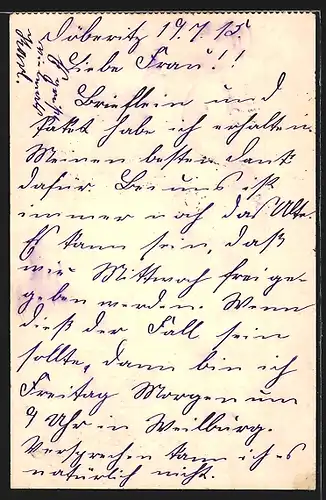 Döberitz 19.7.15.
Liebe Frau!!
Brieflein und
Paket habe ich erhalten.
Meinen besten Dank
dafür. Bei uns ist
immer noch das Alte.
Es kann sein, daß
wir Mittwoch freige-
geben werden. Wenn
dieß der Fall sein
sollte, dann bin ich
Freitag Morgen um
9 Uhr in Weilburg.
Versprechen kann ich es
natürlich nicht.
Karl.